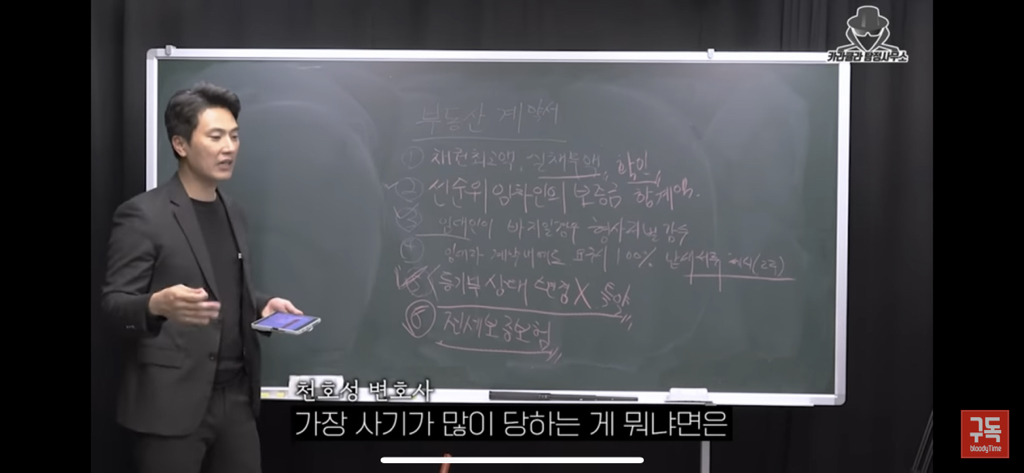 카라큘라 탐정사무소
부동산 계약서
① 채권최고액, 실채무액, 확인
② 선순위 임차인의 보증금 합계액.
③ 임대인이 바뀌일경우 형사처벌 감수
④ 100%
⑤ 등기부 상태 변경 X
⑥ 전세보증보험
천호성 변호사
가장 사기가 많이 당하는 게 뭐냐면은
구독
bloodyTime